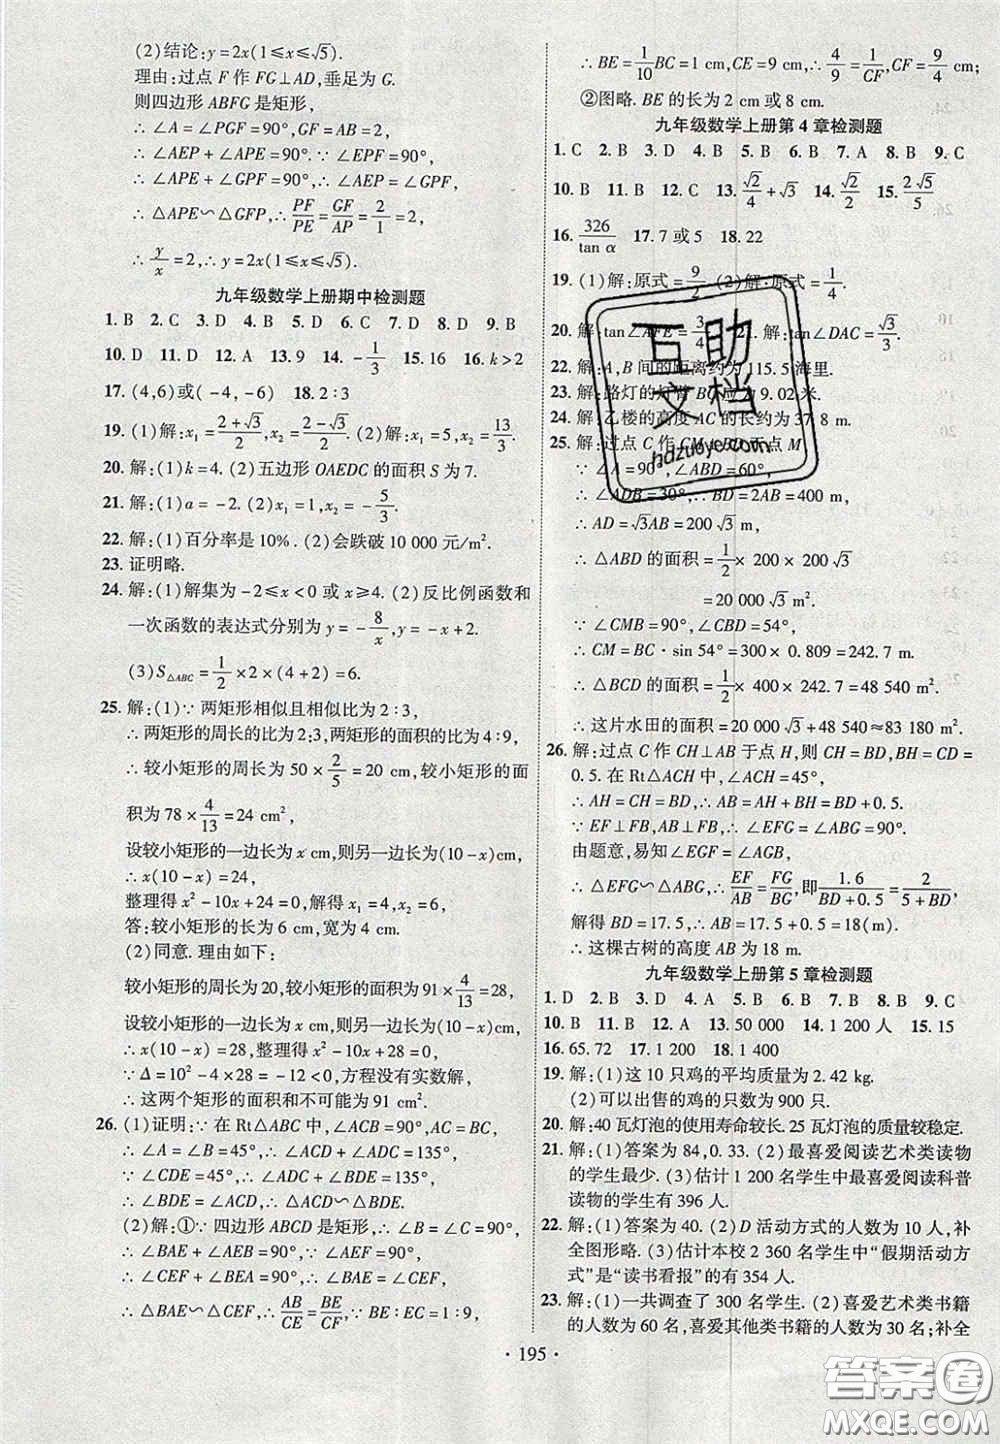 (2)结论:y=2x(1≤x≤√5).
理由:过点 F 作 FG⊥AD,垂足为 G.
则四边形 ABFG 是矩形,
∴∠A=∠PGF=90°,GF=AB=2,
∴∠AEP+∠APE=90°.∵∠APF=90°,
∴∠APE+∠GPF=90°,∴∠AEP=∠GPF,
∴△APE∽△GFP,∴PF/PE=GF/AP=2/1=2,
∴y/x=2,∴y=2x(1≤x≤√5).
九年级数学上册期中检测题
1. B 2. C 3. D 4. C 5. D 6. C 7. D 8. B 9. B
10. D 11. D 12. A 13. 9 14. -1/3 15. 16 16. k>2
17. (4,6)或(-4,-6) 18. 2∶3
19. (1)解:x₁=(2+√3)/2,x₂=(2-√3)/2. (2)解:x₁=5,x₂=13/3.
20. 解:(1)k=4. (2)五边形 OAEDC 的面积 S 为 7.
21. 解:(1)a=-2. (2)x₁=1,x₂=-5/3.
22. 解:(1)百分率是 10%. (2)会跌破 10 000 元/m².
23. 证明略.
24. 解:(1)解集为-2≤x<0 或 x≥4. (2)反比例函数和
一次函数的表达式分别为 y=-8/x,y=-x+2.
(3)S△ABC=1/2×2×(4+2)=6.
25. 解:(1)∵两矩形相似且相似比为 2∶3,
∴两矩形的周长的比为 2∶3,两矩形的面积的比为 4∶9,
∴较小矩形的周长为 50×2/5=20 cm,较小矩形的面
积为 78×4/13=24 cm²,
设较小矩形的一边长为 x cm,则另一边长为(10-x)cm,
∴x(10-x)=24,
整理得 x²-10x+24=0,解得 x₁=4,x₂=6,
答:较小矩形的长为 6 cm,宽为 4 cm.
(2)同意. 理由如下:
较小矩形的周长为 20,较小矩形的面积为 91×4/13=28,
设较小矩形的一边长为 x cm,则另一边长为(10-x)cm,
∴x(10-x)=28,整理得 x²-10x+28=0,
∵Δ=10²-4×28=-12<0,此方程无实数解,
∴这两个矩形的面积和不可能为 91 cm².
26. (1)证明:∵在 Rt△ABC 中,∠ACB=90°,AC=BC,
∴∠A=∠B=45°,
∵∠CDE=45°,∴∠A=∠CDE=45°,
∴∠BDE=∠ACD,∴△ACD∽△BDE.
(2)解:①∵四边形 ABCD 是矩形,∴∠B=∠C=90°,
∴∠BAE+∠AEB=90°.∵EF⊥AE,
∴∠CEF+∠BEA=90°,∴∠BAE=∠CEF,
∴△BAE∽△CEF,∴AB/CE=BE/CF,∵BE∶EC=1∶9,
∴BE=1/10BC=1 cm,CE=9 cm,∴4/9=1/CF,CF=9/4 cm;
②图略. BE 的长为 2 cm 或 8 cm.
九年级数学上册第 4 章检测题
1. C 2. B 3. D 4. B 5. B 6. B 7. A 8. B 9. C
10. B 11. B 12. B 13. √2/4+√3 14. √2/2 15. 2√5/5
16. 326/tan α 17. 7 或 5 18. 22
19. (1)解:原式=9/2. (2)解:原式=1/4.
20. 解:tan∠AFE=3/4. 21. 解:tan∠DAC=√3/3.
22. 解:A,B 间的距离约为 115.5 海里.
23. 解:路灯的灯臂 BC 应为 9.02 米.
24. 解:乙楼的高度 AC 的长约为 37.8 m.
25. 解:过点 C 作 CM⊥BD 于点 M,
∵∠A=90°,∠ABD=60°,
∴∠ADB=30°,∴BD=2AB=400 m,
∴AD=√3AB=200√3 m,
∴△ABD 的面积=1/2×200×200√3
=20 000√3 m².
∵∠CMB=90°,∠CBD=54°,
∴CM=BC·sin 54°=300×0.809=242.7 m.
∴△BCD 的面积=1/2×400×242.7=48 540 m².
∴这片水田的面积=20 000√3+48 540≈83 180 m².
26. 解:过点 C 作 CH⊥AB 于点 H,则 CH=BD,BH=CD=
0.5. 在 Rt△ACH 中,∠ACH=45°,
∴AH=CH=BD,∴AB=AH+BH=BD+0.5.
∵EF⊥FB,AB⊥FB,∴∠EFG=∠ABG=90°.
由题意,易知∠EGF=∠AGB,
∴△EFG∽△ABG,∴EF/AB=FG/BG,即1.6/(BD+0.5)=2/(5+BD),
解得 BD=17.5,∴AB=17.5+0.5=18(m).
∴这棵古树的高度 AB 为 18 m.
九年级数学上册第 5 章检测题
1. D 2. B 3. D 4. C 5. D 6. A 7. D 8. B 9. C
10. B 11. B 12. A 13. 50 000 14. 1 200 人 15. 15
16. 65.72 17. 1 200 18. 1 400
19. 解:(1)这 10 只鸡的平均质量为 2.42 kg.
(2)可以出售的鸡的只数为 900 只.
20. 解:40 瓦灯泡的使用寿命较长. 25 瓦灯泡的质量较稳定.
21. 解:(1)答案为 84,0.33. (2)最喜爱阅读艺术类读物
的学生最少. (3)估计 1 200 名学生中最喜爱阅读科普
读物的学生有 396 人.
22. 解:(1)答案为 40. (2)D 活动方式的人数为 10 人,补
全图形略. (3)估计本校 2 360 名学生中“假期活动方
式”是“读书看报”的有 354 人.
23. 解:(1)一共调查了 300 名学生. (2)喜爱艺术类书籍
的人数为 60 名,喜爱其他类书籍的人数为 30 名;补全
·195·
互助文档
hdzuoye.com
答案圈
MXQE.COM